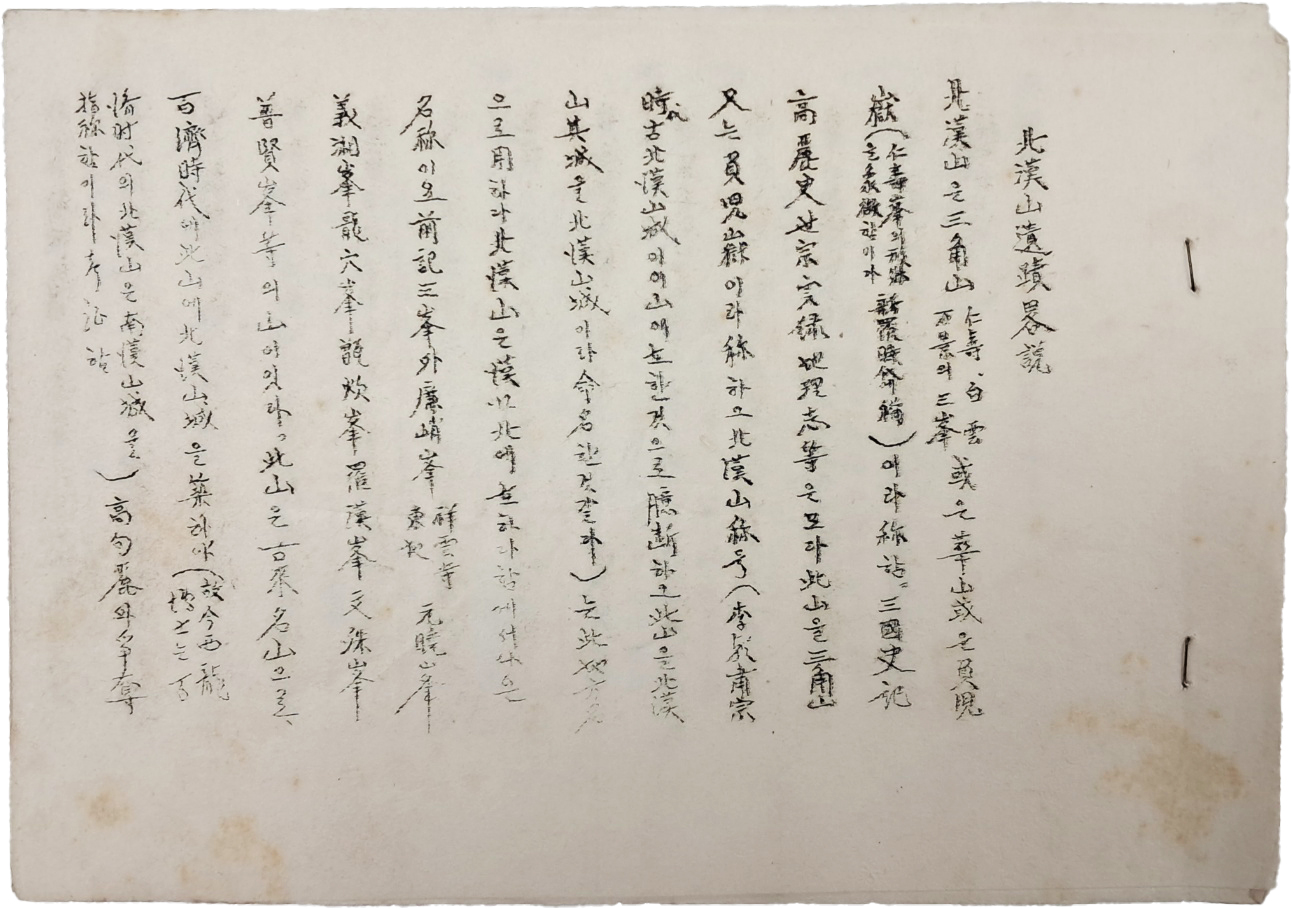 北漢山遺蹟畧説
北漢山은 三角山 仁壽、白雲
萬景의 三峯 或은 華山 或은 負児
嶽(仁壽峯의 形跡
을 象徵함이라 新羅時代 稱)이라 称함。三國史記
高麗史 世宗宗実録 地理志 等은 모다 此山을 三角山
又는 負児嶽이라 称하고 北漢山 称号(李朝 肅宗
時代 古北漢山城이 이 山에 在한 것으로 臆断하고 此山을 北漢
山 其城을 北漢山城이라 命名한 것 갓다)는 此 地方名
으로 用하다 北漢山은 漢江 北에 在하다 함에서 나온
名称이오 前記 三峯 外 廉峭峯 祥雲寺
東北 元曉峯
義湘峯 龍穴峯 甑炊峯 羅漢峯 文殊峯
普賢峯 等의 山이 잇다。此山은 古來 名山으로、
百濟時代에 此山에 北漢山城을 築하야(故 今西龍
博士는 百
濟時代의 北漢山은 南漢山城을
指称함이라 考証함)高句麗와 争奪